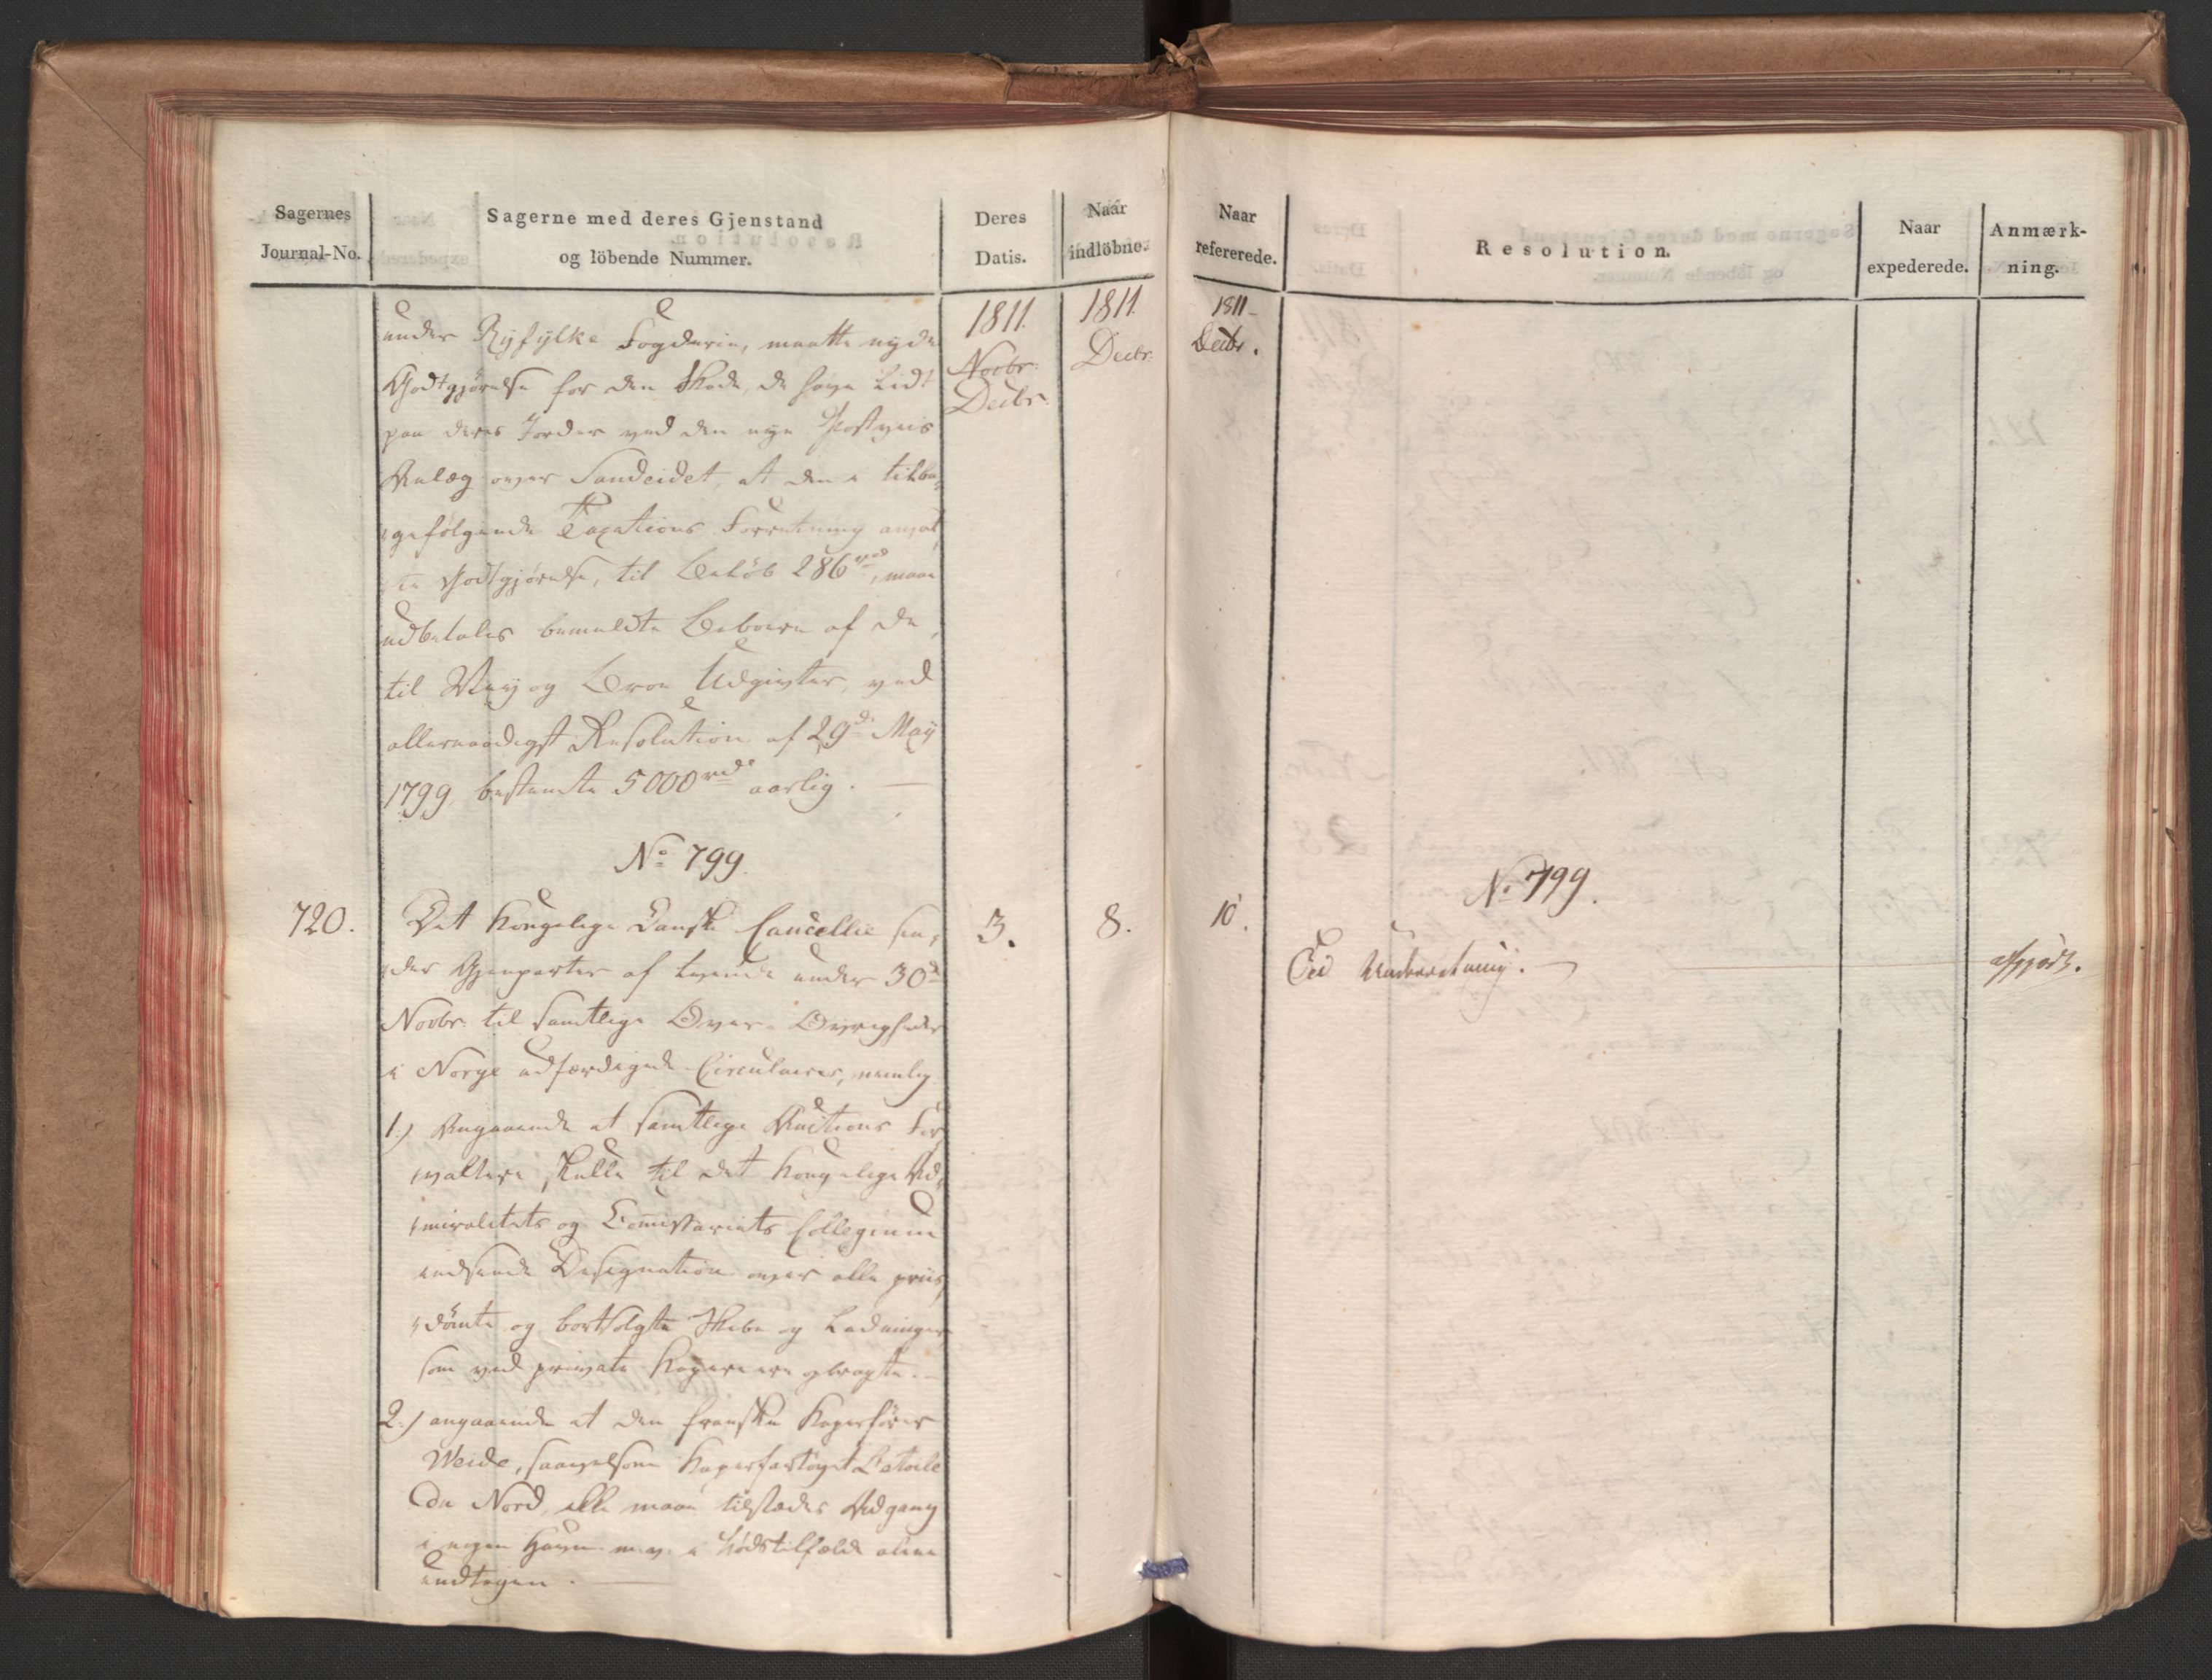 Sagernes
Journal-No.
Sagerne med deres Gjenstand
og löbende Nummer.
Deres
Datis.
Naar
indlöbne.
1811.
Novbr.
Decbr.
1811
Decbr.
under Ryfylke Fogderie, maatte nyde
Godtgjørelse for den Skade, de have lidt
paa deres Jorder ved den nye Postveis
Anlæg over Sandeidet, at den i tilba-
gefølgende Taxations Forretning ansat
te Godtgjørelse, til Beløb 286 rd, maae
udbetales bemeldte Beboere af de,
til Vey og Broe Udgivter, ved
allernaadigst Resolution af 29de May
1799, bestemte 5000 rd aarlig. —
No 799.
720.
Det Kongelige Danske Cancellie sen-
der Gjenparter af tvende under 30d
Novbr. til samtlige Over-Øvrigheder
i Norge udfærdigede Circulairer, nemlig
1.) Angaaende at samtlige Auctions For
valtere skulle til det Kongelige Ad-
miralitets og Commissariats Collegium
indsende Designation over alle priis-
dömte og bortsolgte Skibe og Ladninger
som ved private Kapere ere opbragte. —
2.) angaaende at den franske Kaperfører
Weide, saavelsom Kaperfartøyet L'etoile
du Nord, ikke maae tilstædes Adgang
i nogen Havn, i Nødstilfælde alene
undtagen. —
3.
8.
Naar
refererede.
Resolution.
Naar
expederede.
Anmærk-
ning.
1811
Decbr.
No 799.
10.
Til Underretning. —
afgjort.